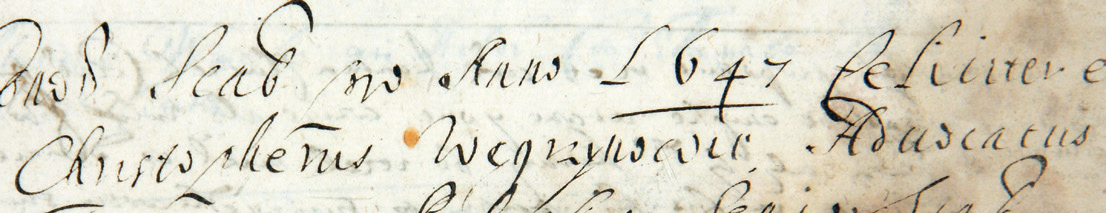 Scab pro Anno 1647 feliciter e
Christopherus Wegrzynowic Aduocatus